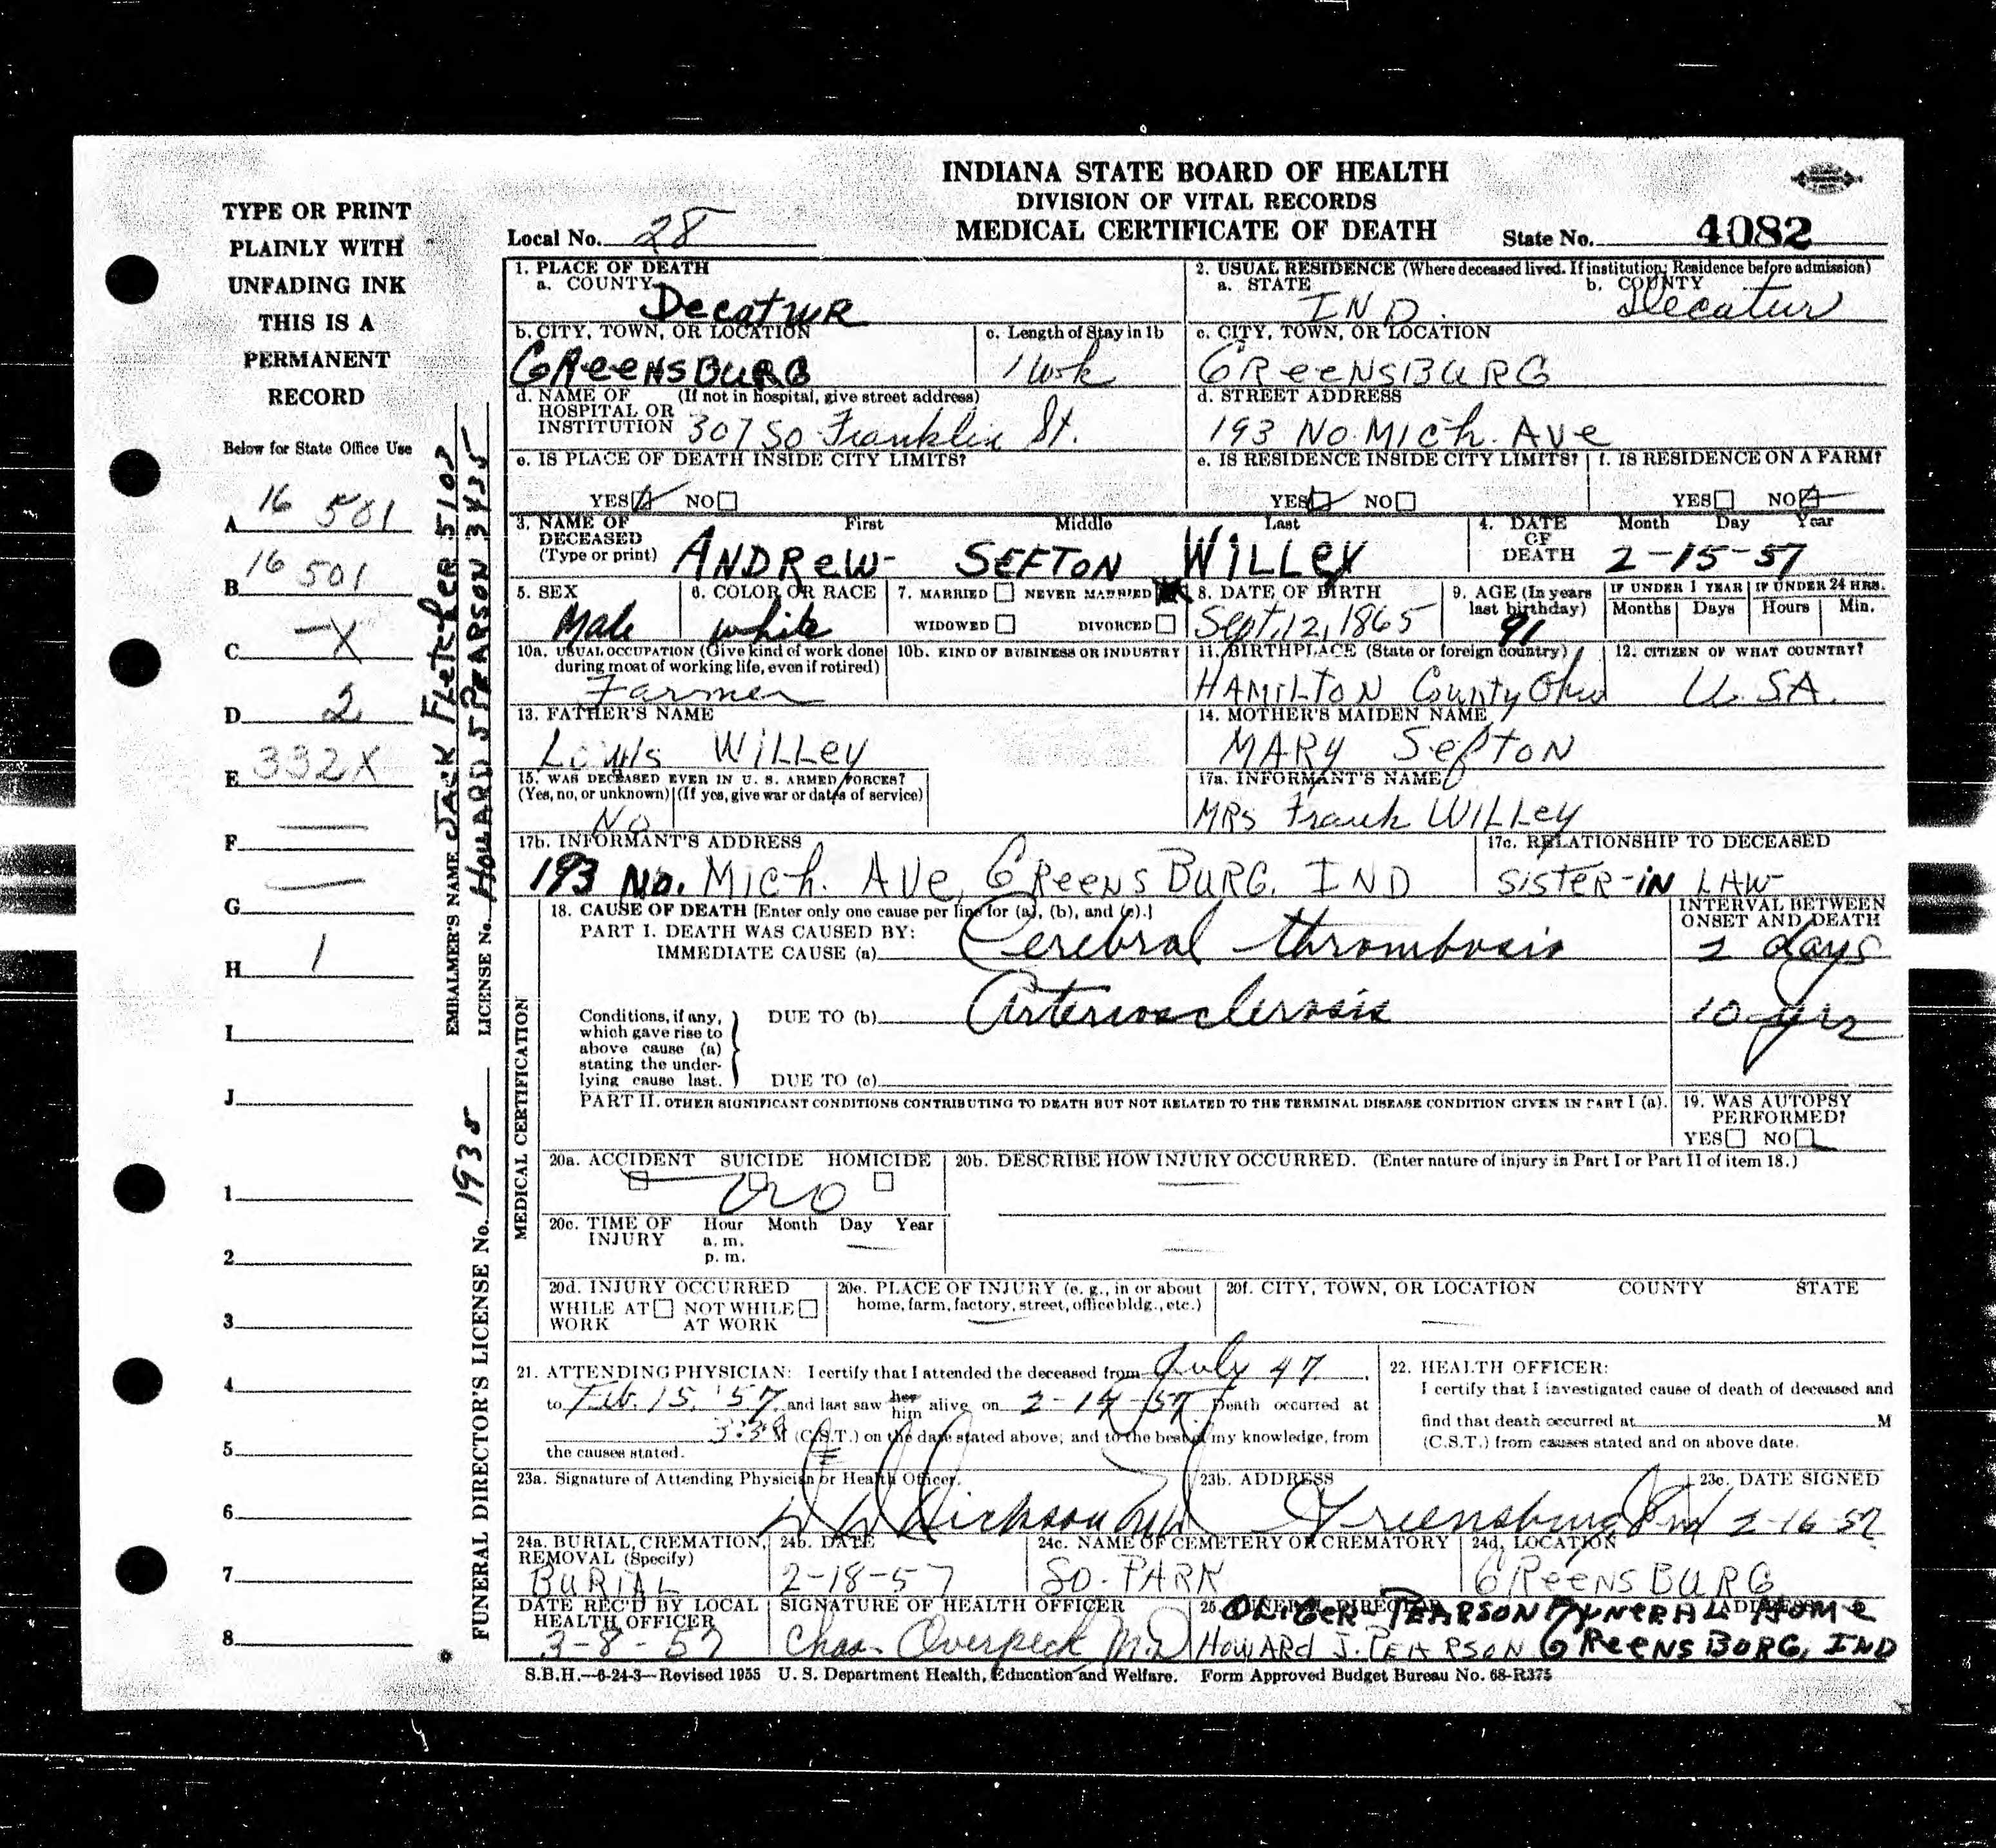 INDIANA STATE BOARD OF HEALTH
DIVISION OF VITAL RECORDS
MEDICAL CERTIFICATE OF DEATH
Local No. 28
State No. 4082
TYPE OR PRINT
PLAINLY WITH
UNFADING INK
THIS IS A
PERMANENT
RECORD
Below for State Office Use
A 16 501
B 16 501
C —X
D 2
E 332X
F —
G —
H 1
I
J
1
2
3
4
5
6
7
8
EMBALMER'S NAME JACK FLetcher 5103
LICENSE No. HOWARD J PEARSON 3435
FUNERAL DIRECTOR'S LICENSE No. 1935
1. PLACE OF DEATH
a. COUNTY
DecatuR
2. USUAL RESIDENCE (Where deceased lived. If institution: Residence before admission)
a. STATE IND. b. COUNTY Decatur
b. CITY, TOWN, OR LOCATION
GReeNSBURG
c. Length of Stay in 1b
1 wk
c. CITY, TOWN, OR LOCATION
GReeNSBURG
d. NAME OF (If not in hospital, give street address)
HOSPITAL OR
INSTITUTION 307 So. Franklin St.
d. STREET ADDRESS
193 No. Mich. Ave
e. IS PLACE OF DEATH INSIDE CITY LIMITS?
YES NO
e. IS RESIDENCE INSIDE CITY LIMITS?
YES NO
f. IS RESIDENCE ON A FARM?
YES NO
3. NAME OF
DECEASED
(Type or print)
First Middle Last
ANDReW- SEFTON WILLeY
4. DATE
OF
DEATH
Month Day Year
2-15-57
5. SEX
Male
6. COLOR OR RACE
White
7. MARRIED NEVER MARRIED
WIDOWED DIVORCED
8. DATE OF BIRTH
Sept. 12, 1865
9. AGE (In years
last birthday)
91
IF UNDER 1 YEAR
Months Days
IF UNDER 24 HRS.
Hours Min.
10a. USUAL OCCUPATION (Give kind of work done
during most of working life, even if retired)
Farmer
10b. KIND OF BUSINESS OR INDUSTRY
11. BIRTHPLACE (State or foreign country)
HAMILTON County Ohio
12. CITIZEN OF WHAT COUNTRY?
U.SA.
13. FATHER'S NAME
Louis WILLey
14. MOTHER'S MAIDEN NAME
MARY SefTON
15. WAS DECEASED EVER IN U. S. ARMED FORCES?
(Yes, no, or unknown) (If yes, give war or dates of service)
No
17a. INFORMANT'S NAME
MRs Frank WILLey
17b. INFORMANT'S ADDRESS
193 No. Mich. AVe, GReeNSBURG. IND
17c. RELATIONSHIP TO DECEASED
SISTER-IN LAW
18. CAUSE OF DEATH [Enter only one cause per line for (a), (b), and (c).]
PART I. DEATH WAS CAUSED BY:
IMMEDIATE CAUSE (a) Cerebral thrombosis
INTERVAL BETWEEN
ONSET AND DEATH
2 days
Conditions, if any,
which gave rise to
above cause (a)
stating the under-
lying cause last.
DUE TO (b) Arteriosclerosis
10 yrs
DUE TO (c)
PART II. OTHER SIGNIFICANT CONDITIONS CONTRIBUTING TO DEATH BUT NOT RELATED TO THE TERMINAL DISEASE CONDITION GIVEN IN PART I (a).
19. WAS AUTOPSY
PERFORMED?
YES NO
MEDICAL CERTIFICATION
20a. ACCIDENT SUICIDE HOMICIDE
no
20b. DESCRIBE HOW INJURY OCCURRED. (Enter nature of injury in Part I or Part II of item 18.)
20c. TIME OF
INJURY
Hour Month Day Year
a. m.
p. m.
20d. INJURY OCCURRED
WHILE AT NOT WHILE
WORK AT WORK
20e. PLACE OF INJURY (e. g., in or about
home, farm, factory, street, office bldg., etc.)
20f. CITY, TOWN, OR LOCATION COUNTY STATE
21. ATTENDING PHYSICIAN: I certify that I attended the deceased from July 47
to Feb. 15, '57, and last saw her him alive on 2-14-57. Death occurred at
M (C.S.T.) on the date stated above; and to the best of my knowledge, from
the causes stated.
22. HEALTH OFFICER:
I certify that I investigated cause of death of deceased and
find that death occurred at M
(C.S.T.) from causes stated and on above date.
23a. Signature of Attending Physician or Health Officer.
Dickson MD
23b. ADDRESS
Greensburg Ind
23c. DATE SIGNED
2-16-57
24a. BURIAL, CREMATION,
REMOVAL (Specify)
BURIAL
24b. DATE
2-18-57
24c. NAME OF CEMETERY OR CREMATORY
SO. PARK
24d. LOCATION
GReeNSBURG
DATE REC'D BY LOCAL
HEALTH OFFICER
3-8-57
SIGNATURE OF HEALTH OFFICER
Chas. Overpeck M.D
25. FUNERAL DIRECTOR ADDRESS
OLIGER-PEARSON FUNERAL HOMe
HowARd J. PEARSON GReeNSBURG, IND
S.B.H.—6-24-3—Revised 1955 U. S. Department Health, Education and Welfare. Form Approved Budget Bureau No. 68-R375